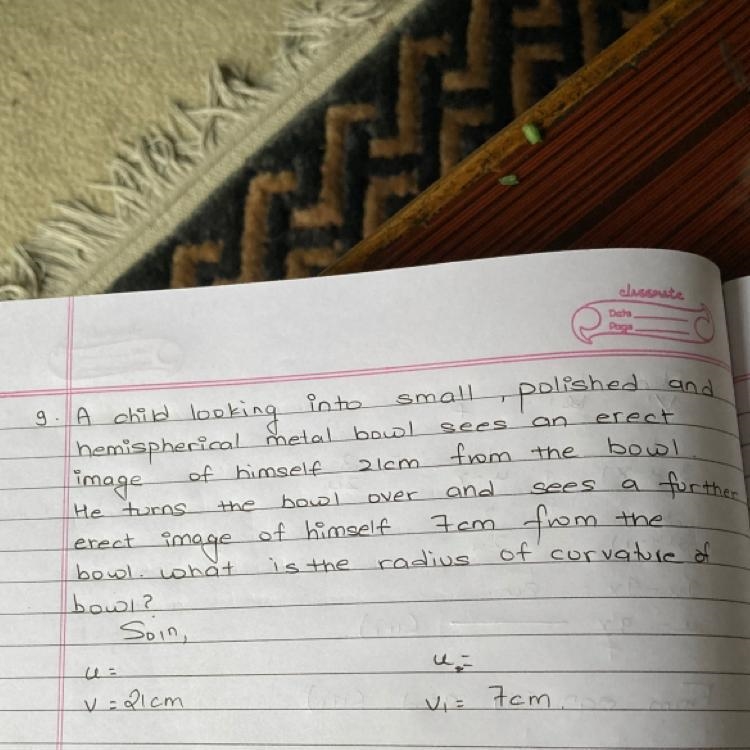 classmate
Date
Page
9. A child looking into small, polished and
hemispherical metal bowl sees an erect
image of himself 21cm from the bowl.
He turns the bowl over and sees a further
erect image of himself 7cm from the
bowl. what is the radius of curvature of
bowl?
Soln,
u =
u =
v = 21cm
v₁ = 7cm.